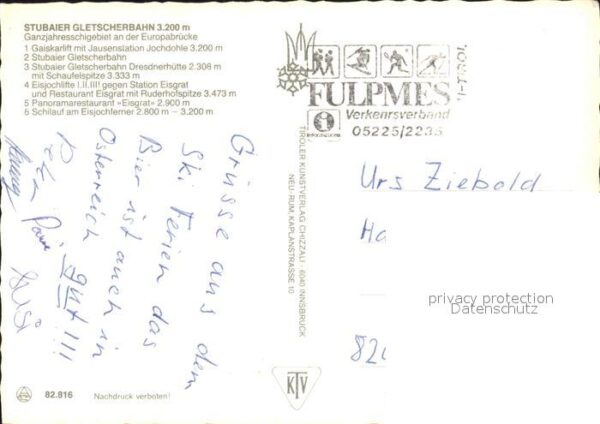 STUBAIER GLETSCHERBAHN 3.200 m
Ganzjahresschigebiet an der Europabrücke
1 Gaiskarlift mit Jausenstation Jochdohle 3.200 m
2 Stubaier Gletscherbahn
3 Stubaier Gletscherbahn Dresdnerhütte 2.308 m
mit Schaufelspitze 3.333 m
4 Eisjochlifte I.II.III! gegen Station Eisgrat
und Restaurant Eisgrat mit Ruderhofspitze 3.473 m
5 Panoramarestaurant »Eisgrat« 2.900 m
6 Schilauf am Eisjochferner 2.800 m – 3.200 m
Grüsse aus dem
Ski Ferien das
Bier ist auch in
Österreich
gut!!!
FULPMES
i
Informationen
Verkehrsverband
05225/2235
TIROLER KUNSTVERLAG CHIZZALI · 6040 INNSBRUCK
NEU-RUM, KAPLANSTRASSE 10
Urs Ziebold
Ha
820
privacy protection
Datenschutz
KTV
82.816
Nachdruck verboten!